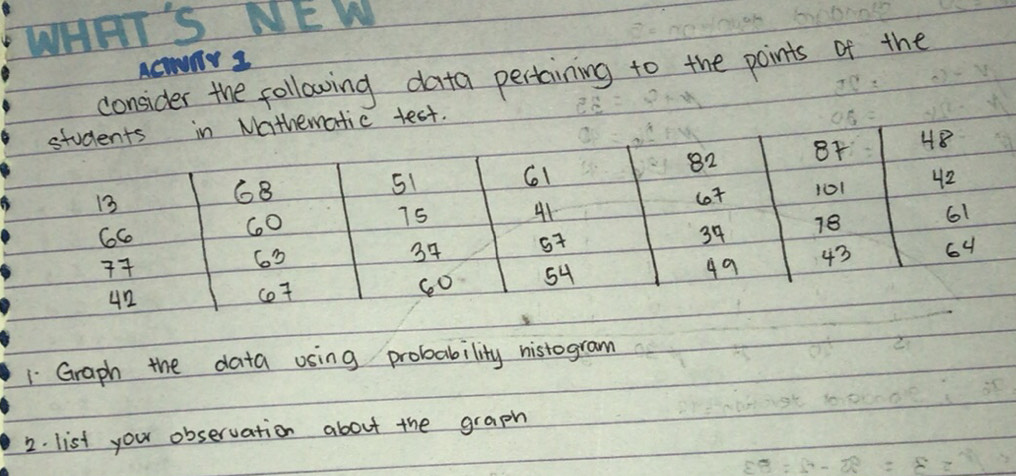 WHAT'S NEW
ACTIVITY 1
Consider the following data pertaining to the points of the
students in Mathematic test.
13 68 51 61 82 87 48
66 60 75 41 67 101 42
77 63 37 57 37 78 61
42 67 60 54 49 43 64
1. Graph the data using probability histogram
2. list your observation about the graph